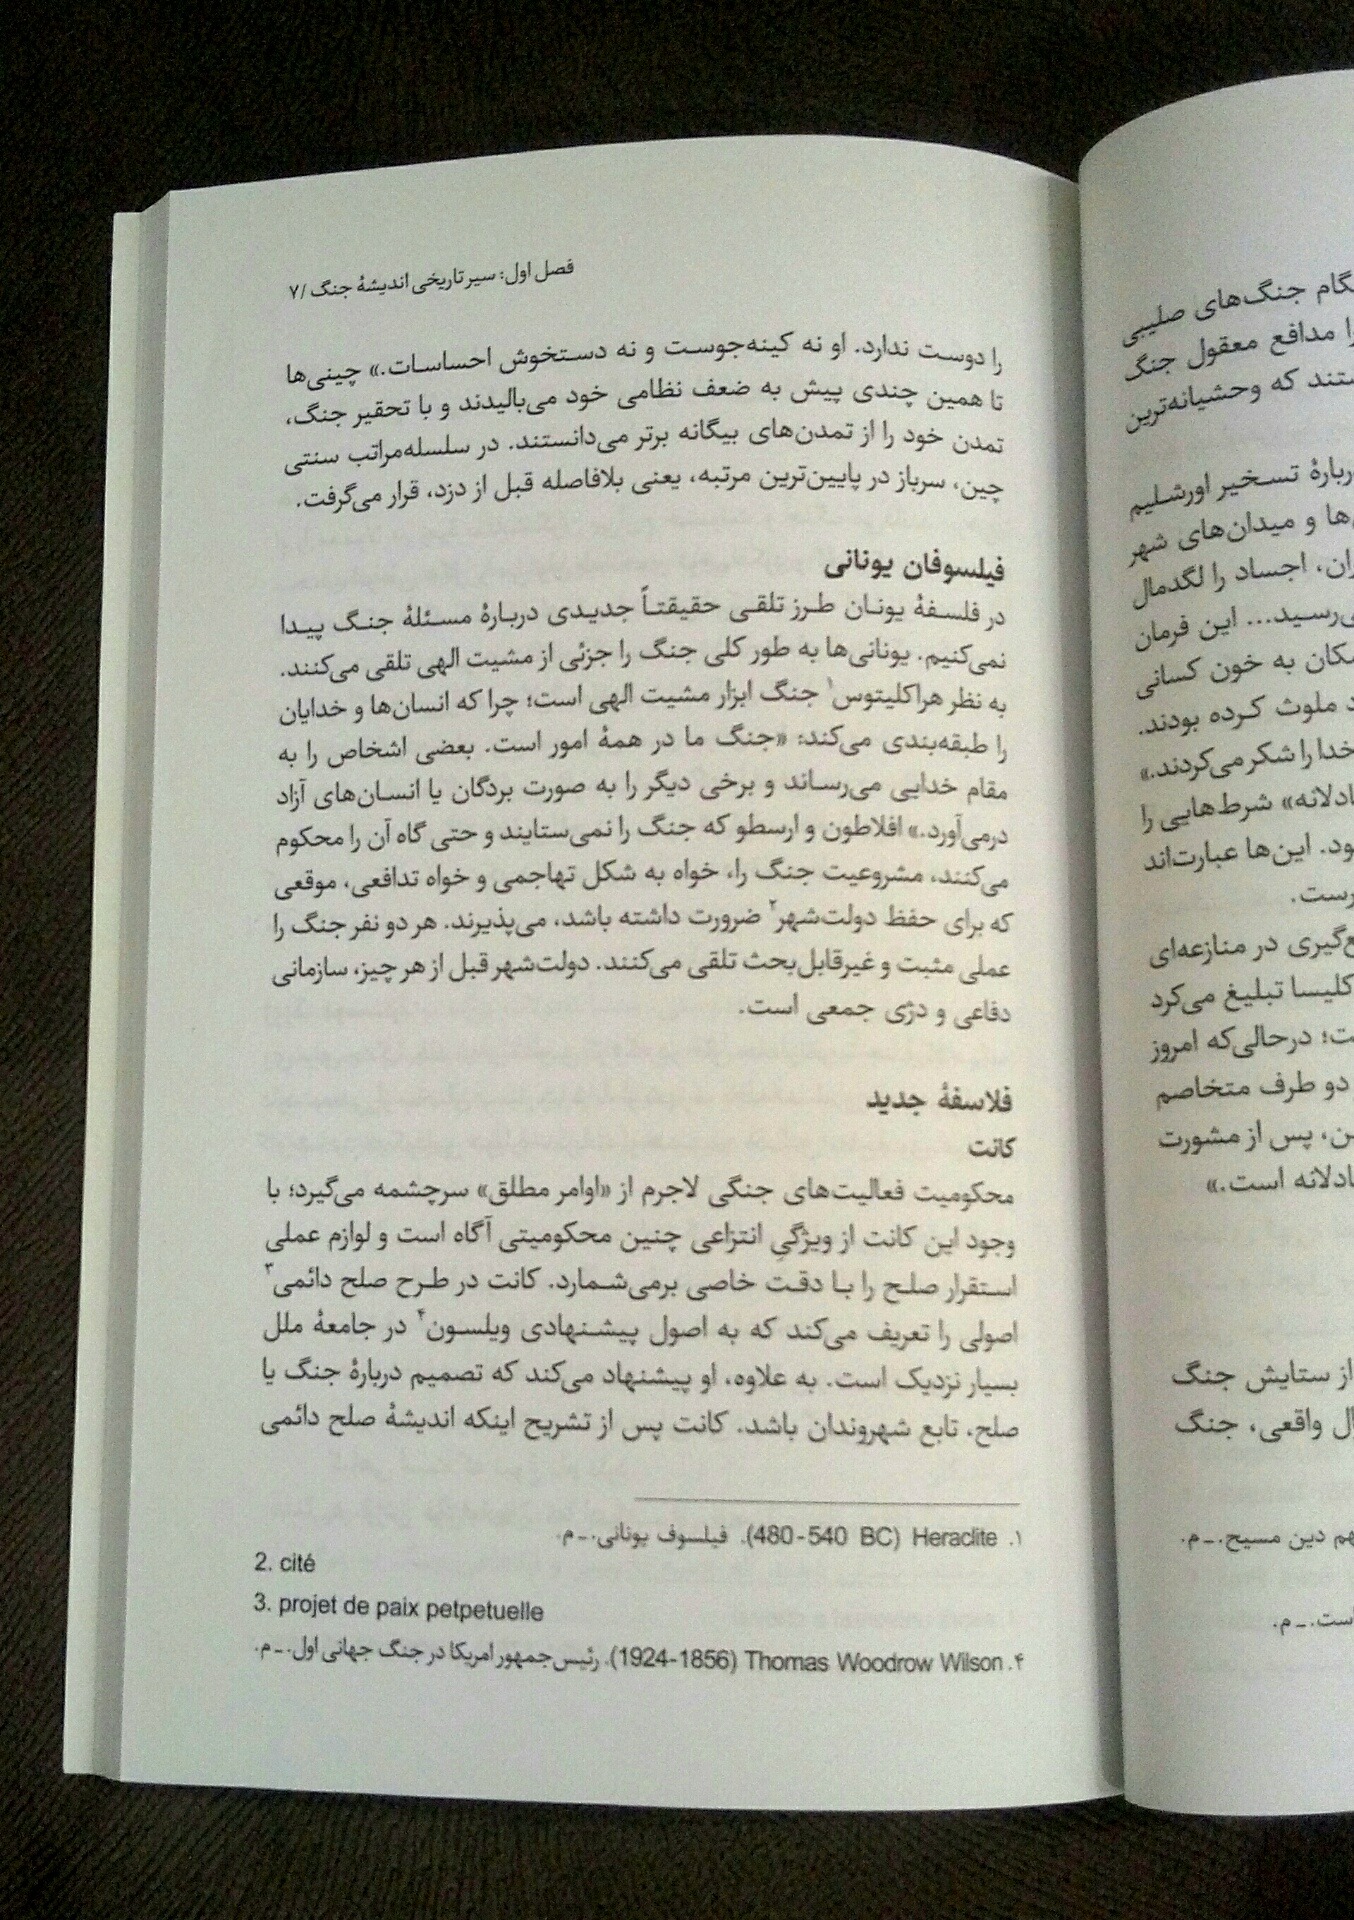 فصل اول: سیر تاریخی اندیشهٔ جنگ /۷
را دوست ندارد. او نه کینه‌جوست و نه دستخوش احساسات.» چینی‌ها
تا همین چندی پیش به ضعف نظامی خود می‌بالیدند و با تحقیر جنگ،
تمدن خود را از تمدن‌های بیگانه برتر می‌دانستند. در سلسله‌مراتب سنتی
چین، سرباز در پایین‌ترین مرتبه، یعنی بلافاصله قبل از دزد، قرار می‌گرفت.
فیلسوفان یونانی
در فلسفهٔ یونان طرز تلقی حقیقتاً جدیدی دربارهٔ مسئلهٔ جنگ پیدا
نمی‌کنیم. یونانی‌ها به طور کلی جنگ را جزئی از مشیت الهی تلقی می‌کنند.
به نظر هراکلیتوس۱ جنگ ابزار مشیت الهی است؛ چرا که انسان‌ها و خدایان
را طبقه‌بندی می‌کند: «جنگ ما در همهٔ امور است. بعضی اشخاص را به
مقام خدایی می‌رساند و برخی دیگر را به صورت بردگان یا انسان‌های آزاد
درمی‌آورد.» افلاطون و ارسطو که جنگ را نمی‌ستایند و حتی گاه آن را محکوم
می‌کنند، مشروعیت جنگ را، خواه به شکل تهاجمی و خواه تدافعی، موقعی
که برای حفظ دولت‌شهر۲ ضرورت داشته باشد، می‌پذیرند. هر دو نفر جنگ را
عملی مثبت و غیرقابل‌بحث تلقی می‌کنند. دولت‌شهر قبل از هر چیز، سازمانی
دفاعی و دژی جمعی است.
فلاسفهٔ جدید
کانت
محکومیت فعالیت‌های جنگی لاجرم از «اوامر مطلق» سرچشمه می‌گیرد؛ با
وجود این کانت از ویژگیِ انتزاعی چنین محکومیتی آگاه است و لوازم عملی
استقرار صلح را با دقت خاصی برمی‌شمارد. کانت در طرح صلح دائمی۳
اصولی را تعریف می‌کند که به اصول پیشنهادی ویلسون۴ در جامعهٔ ملل
بسیار نزدیک است. به علاوه، او پیشنهاد می‌کند که تصمیم دربارهٔ جنگ یا
صلح، تابع شهروندان باشد. کانت پس از تشریح اینکه اندیشهٔ صلح دائمی
۱. Heraclite (480-540 BC). فیلسوف یونانی. ـ م.
2. cité
3. projet de paix petpetuelle
۴. Thomas Woodrow Wilson (1924-1856). رئیس‌جمهور امریکا در جنگ جهانی اول. ـ م.
جنگ‌های صلیبی
را مدافع معقول جنگ
که وحشیانه‌ترین
دربارهٔ تسخیر اورشلیم
و میدان‌های شهر
اجساد را لگدمال
این فرمان
به خون کسانی
ملوث کرده بودند.
خدا را شکر می‌کردند.»
شرط‌هایی را
این‌ها عبارت‌اند
در منازعه‌ای
کلیسا تبلیغ می‌کرد
درحالی‌که امروز
دو طرف متخاصم
پس از مشورت
عادلانه است.»
از ستایش جنگ
واقعی، جنگ
دین مسیح. ـ م.
است. ـ م.